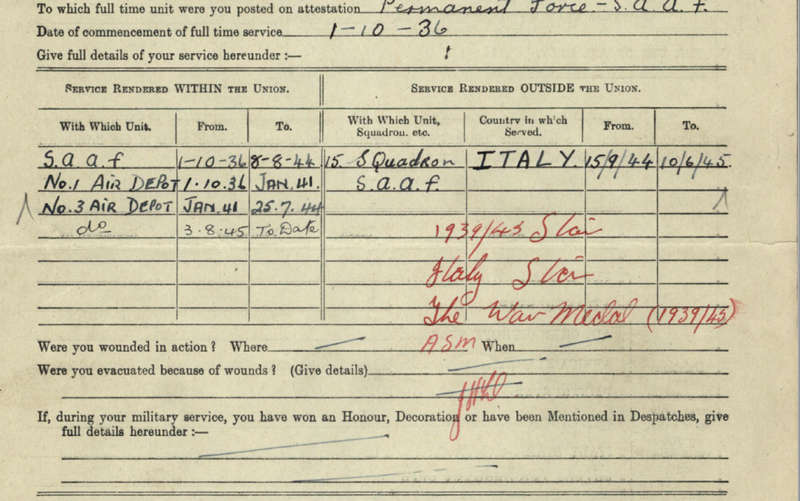 To which full time unit were you posted on attestation Permanent Force - S.a.a.f.
Date of commencement of full time service 1-10-36
Give full details of your service hereunder :—
SERVICE RENDERED WITHIN THE UNION. SERVICE RENDERED OUTSIDE THE UNION.
With Which Unit. From. To. With Which Unit, Squadron. etc. Country in wh'ch Served. From. To.
S.a.a.f 1-10-36 8-8-44 15. SQuadron ITALY. 15/9/44 10/6/45.
No.1 AIR DEPOT 1.10.36 JAN.41. S.a.a.f.
No.3 AIR DEPOT JAN.41 25.7.44
do 3.8.45 To Date 1939/45 Star
Italy Star
The War Medal (1939/45)
Were you wounded in action ? Where ASM When
Were you evacuated because of wounds ? (Give details)
If, during your military service, you have won an Honour, Decoration or have been Mentioned in Despatches, give
full details hereunder :—